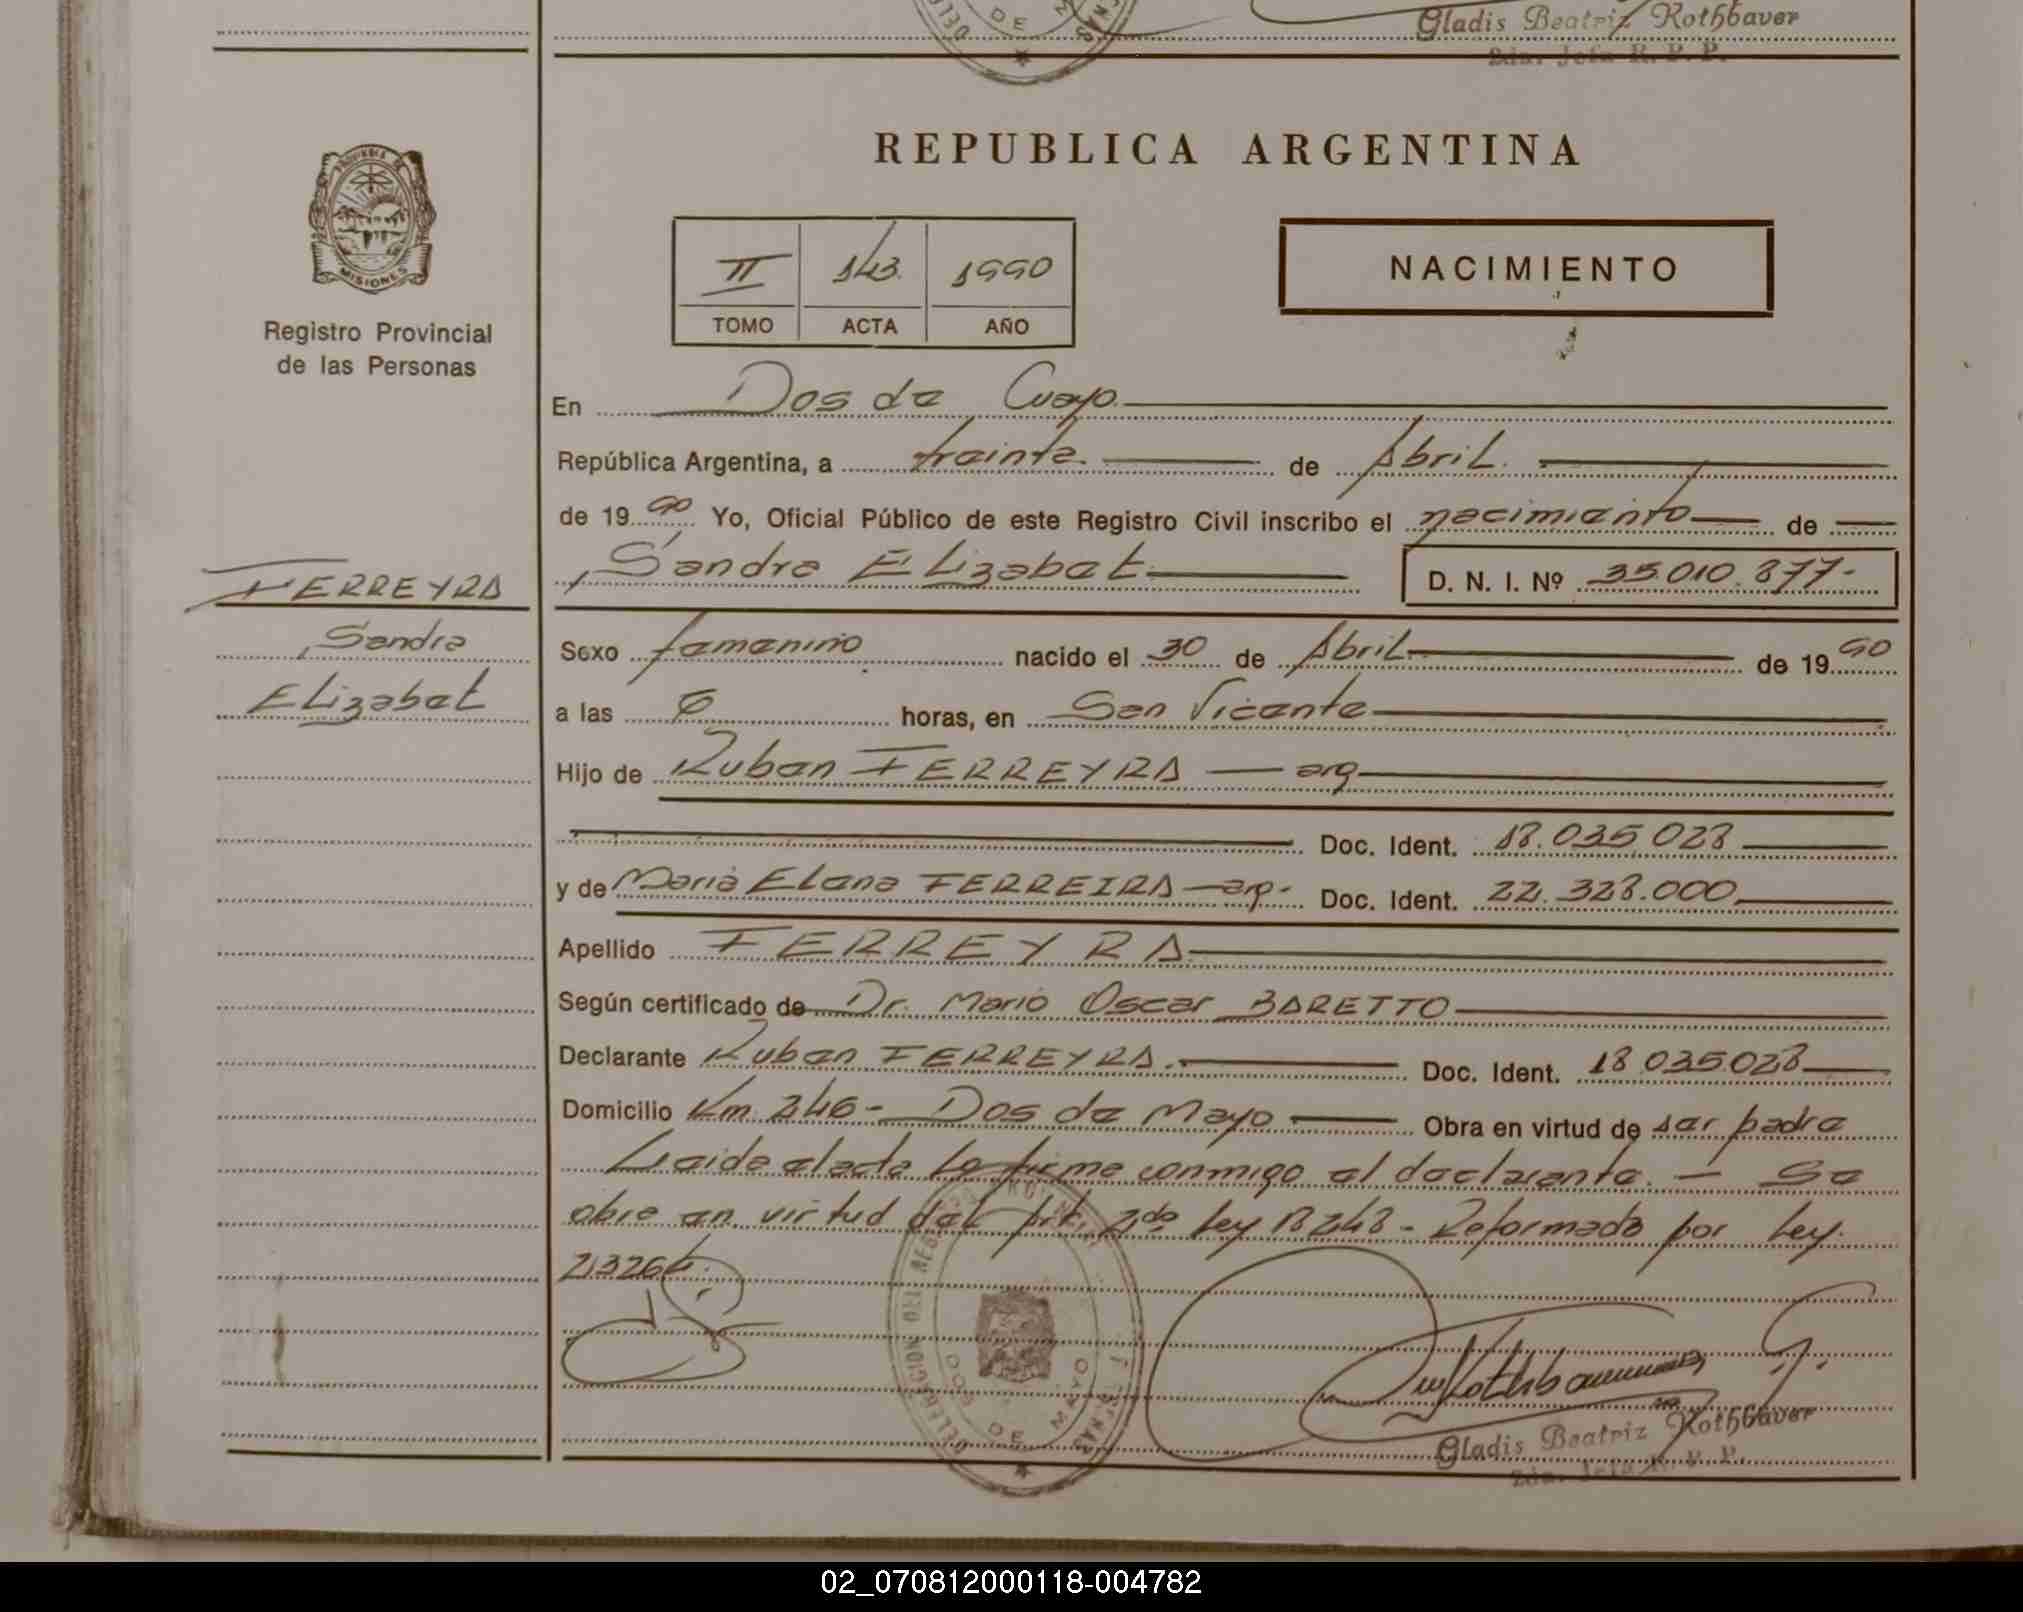 Gladis Beatriz Rothbaver
2da. Jefa R. P. P.
REPUBLICA ARGENTINA
PROVINCIA DE
MISIONES
Registro Provincial
de las Personas
II 143 1990
TOMO ACTA AÑO
NACIMIENTO
En Dos de Cuayo
República Argentina, a treinta de Abril
de 1990 Yo, Oficial Público de este Registro Civil inscribo el nacimiento de
Sandra Elizabet D. N. I. Nº 35.010.877-
FERREYRA
Sandra
Elizabet
Sexo femenino nacido el 30 de Abril de 1990
a las 6 horas, en San Vicente
Hijo de Ruben FERREYRA — arg
Doc. Ident. 18.035.028
y de Maria Elena FERREIRA — arg. Doc. Ident. 22.328.000
Apellido FERREYRA
Según certificado de Dr. Mario Oscar BARETTO
Declarante Ruben FERREYRA. Doc. Ident. 18.035028
Domicilio Km. 246 - Dos de Mayo Obra en virtud de ser padre
Leida el acta la firme conmigo el declarante. — Se
obre en virtud del Art. 2do Ley 18248 - Reformado por Ley
21326
DELEGACION DEL REGISTRO PROVINCIAL
DOS DE MAYO
Rothbauer G.
Gladis Beatriz Rothbaver
2da. Jefa R. P. P.
02_070812000118-004782